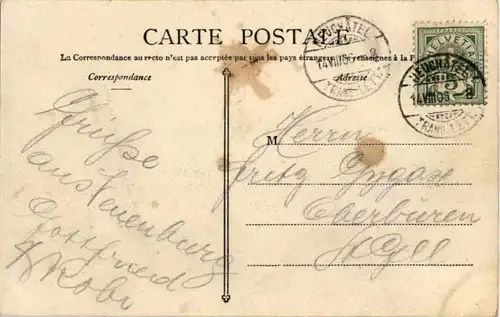 CARTE POSTALE
La Correspondance au recto n'est pas acceptée par tous les pays étrangers. (Se renseigner à la P
Correspondance
Adresse
HELVETIA
5
NEUCHÂTEL
14 VIII 06 - 8
NEUCHÂTEL
14 VIII 06 - 8
Grüsse
aus Neuenburg
Gottfried
Kobi
M Herrn
Fritz Gygax